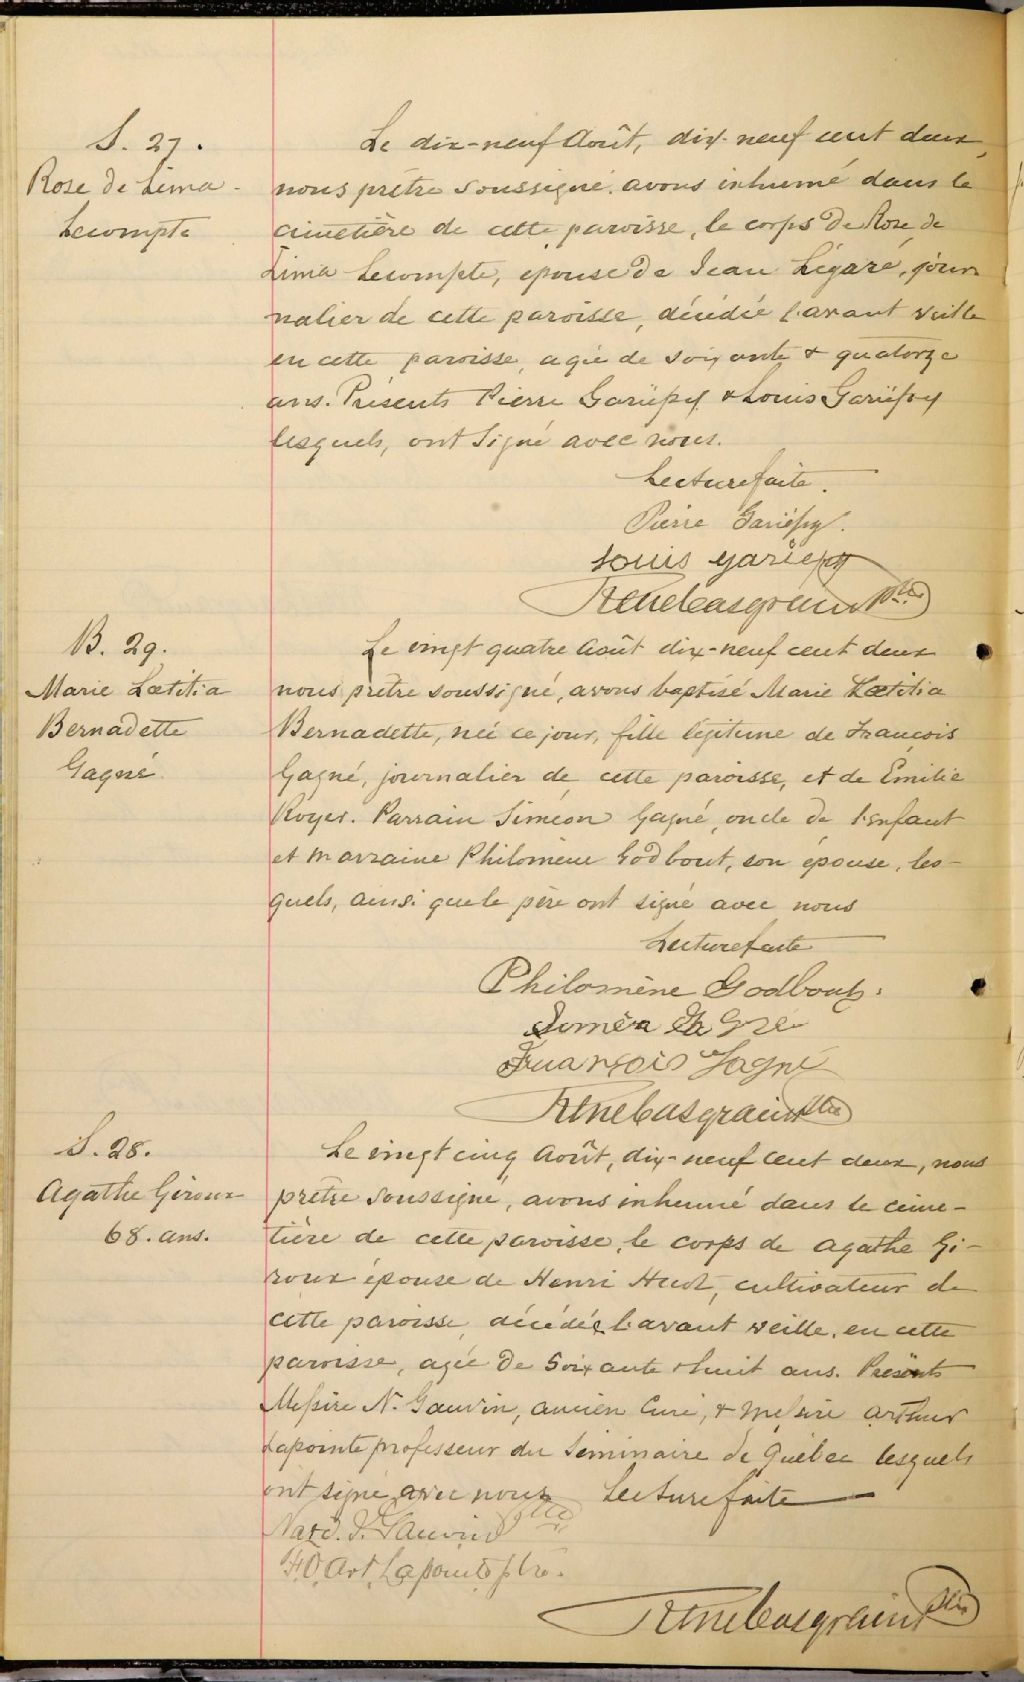 S. 27.
Rose de Lima
Lecompte
Le dix-neuf Août, dix-neuf cent deux,
nous prêtre soussigné avons inhumé dans le
cimetière de cette paroisse, le corps de Rose de
Lima Lecompte, épouse de Jean Légaré, jour
nalier de cette paroisse, décédée l'avant veille
en cette paroisse, agée de soixante & quatorze
ans. Présents Pierre Gariépy & Louis Gariépy
lesquels, ont signé avec nous.
Lecture faite.
Pierre Gariépy.
Louis gariepy
René Casgrain ptre
B. 29.
Marie Lætitia
Bernadette
Gagné
Le vingt quatre Août dix-neuf cent deux
nous prêtre soussigné, avons baptisé Marie Lætitia
Bernadette, née ce jour, fille légitime de François
Gagné, journalier de cette paroisse, et de Émilie
Royer. Parrain Siméon Gagné, oncle de l'enfant
et marraine Philomène Godbout, son épouse, les-
quels, ainsi que le père ont signé avec nous
Lecture faite
Philomène Godbout
Siméon Gagné
François Gagné
René Casgrain ptre
S. 28.
Agathe Giroux
68. ans.
Le vingt cinq Août, dix-neuf cent deux, nous
prêtre soussigné, avons inhumé dans le cime-
tière de cette paroisse, le corps de Agathe Gi-
roux épouse de Henri Huot, cultivateur de
cette paroisse, décédée l'avant veille, en cette
paroisse, agée de Soixante & huit ans. Présents
Messire N. Gauvin, ancien Curé, & Messire Arthur
Lapointe professeur du Séminaire de Québec lesquels
ont signé avec nous Lecture faite
Narc. J. Gauvin ptre
F.O. Art. Lapointe ptre.
René Casgrain ptre